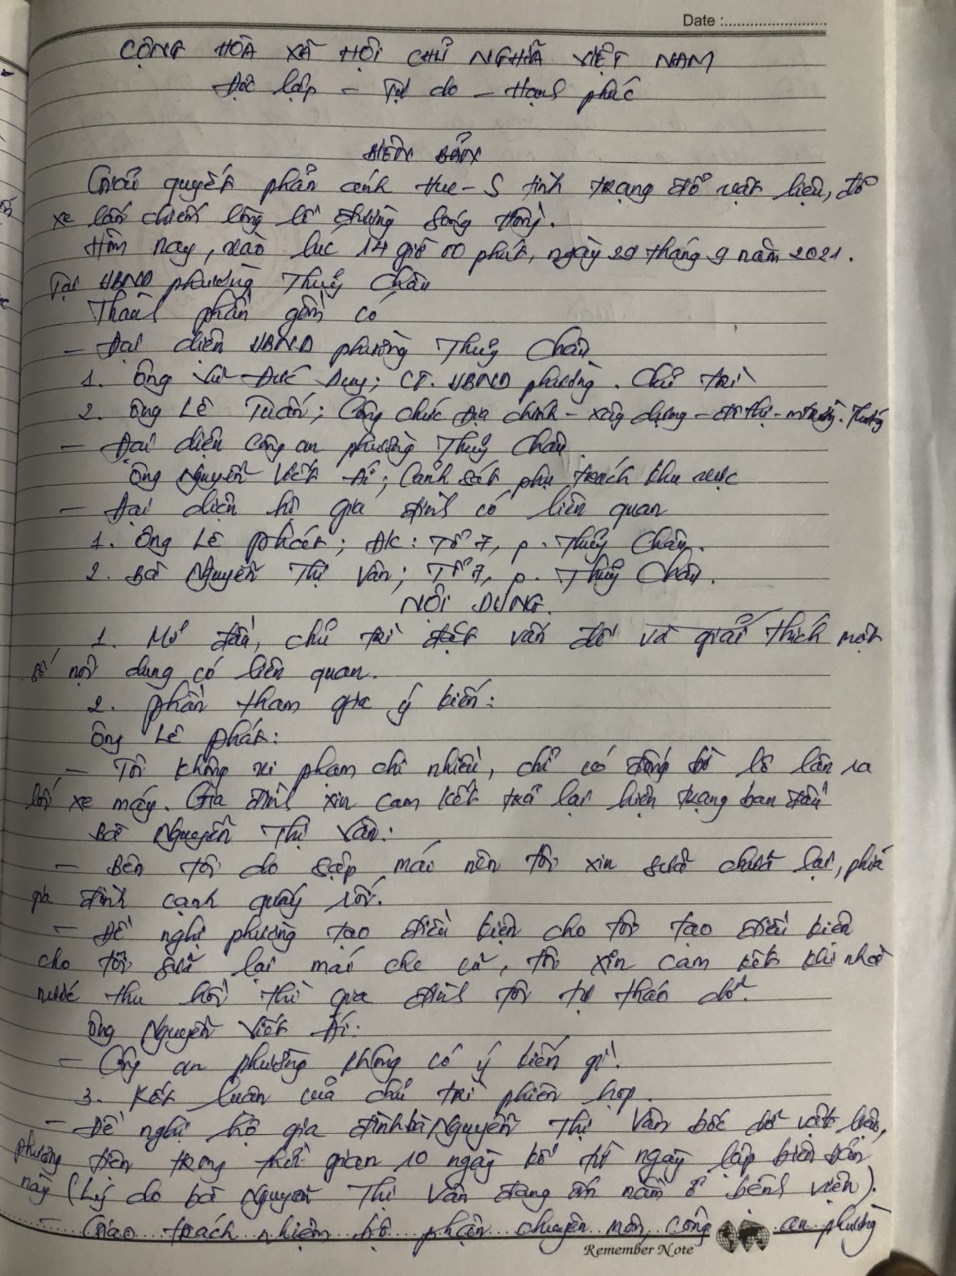 Date :
CỘNG HÒA XÃ HỘI CHỦ NGHĨA VIỆT NAM
Độc lập - Tự do - Hạnh phúc
BIÊN BẢN
Giải quyết phản ánh Hue-S tình trạng đổ vật liệu, đỗ
xe lấn chiếm lòng lề đường Sóng Hồng.
Hôm nay, vào lúc 14 giờ 00 phút, ngày 29 tháng 9 năm 2021.
Tại UBND phường Thuỷ Châu
Thành phần gồm có
- Đại diện UBND phường Thuỷ Châu
1. Ông Đức Duy; CT. UBND phường. Chủ trì
2. Ông Lê Tuấn; Công chức Địa chính - xây dựng - đô thị - môi trường.
- Đại diện Công an phường Thuỷ Châu.
Ông Nguyễn Viết Ái; Cảnh sát phụ trách khu vực
- Đại diện hộ gia đình có liên quan
1. Ông Lê Phát; ĐC: Tổ 7, p. Thuỷ Châu.
2. Bà Nguyễn Thị Vân; Tổ 7, p. Thuỷ Châu.
NỘI DUNG
1. Mở đầu, chủ trì đặt vấn đề và giải thích một
số nội dung có liên quan.
2. Phần tham gia ý kiến:
Ông Lê Phát:
- Tôi không vi phạm chi nhiều, chỉ có lô lấn ra
xe máy. Gia đình xin cam kết trả lại hiện trạng ban đầu
Bà Nguyễn Thị Vân:
- Bên tôi do sập mái nên tôi xin sửa chữa lại, phía
gia đình cạnh quấy rối.
- Đề nghị phường tạo điều kiện cho tôi tạo điều kiện
cho tôi sửa lại mái che cũ, tôi xin cam kết khi nhà
nước thu hồi thì gia đình tôi tự tháo dỡ.
Ông Nguyễn Viết Ái:
- Công an phường không có ý kiến gì.
3. Kết luận của chủ trì phiên họp.
- Đề nghị hộ gia đình bà Nguyễn Thị Vân bốc dỡ vật liệu,
phương tiện trong thời gian 10 ngày kể từ ngày lập biên bản
này (Lý do bà Nguyễn Thị Vân đang nằm ở bệnh viện).
- Giao trách nhiệm bộ phận chuyên môn, công an phường
Remember Note